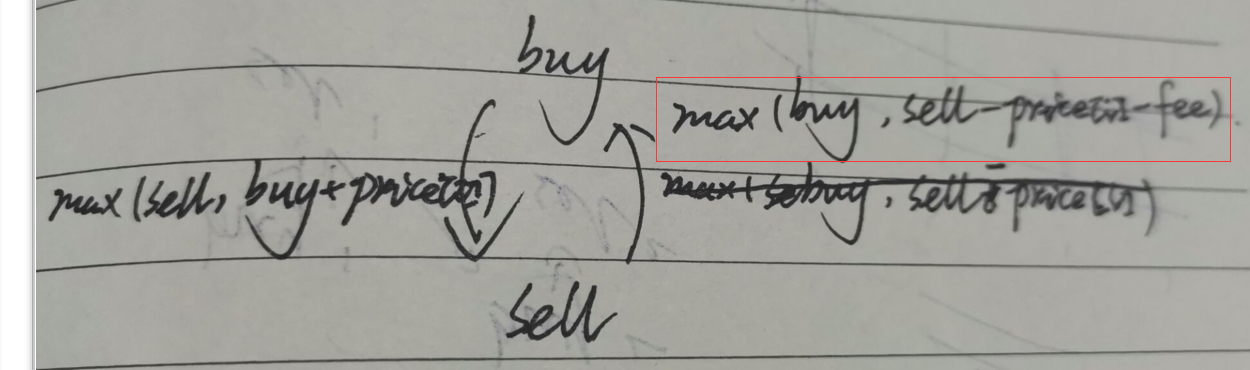 buy
max(buy, sell-price[i]-fee)
max(sell, buy+price[i])
buy, sell price[i])
sell